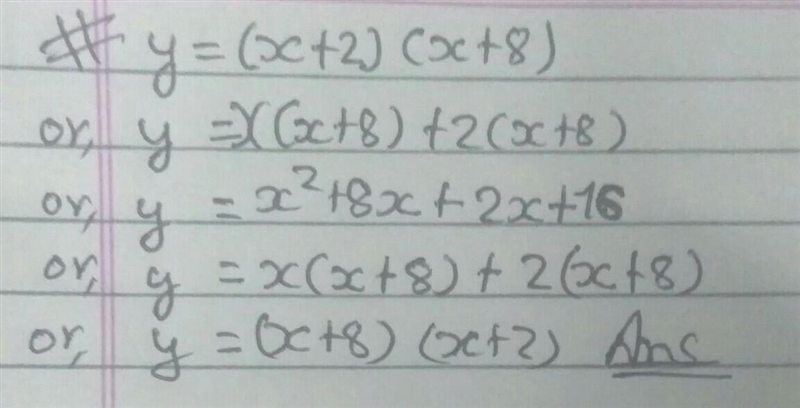 # y = (x+2) (x+8)
or, y = x(x+8) + 2(x+8)
or, y = x²+8x+2x+16
or, y = x(x+8) + 2(x+8)
or, y = (x+8) (x+2) Ans